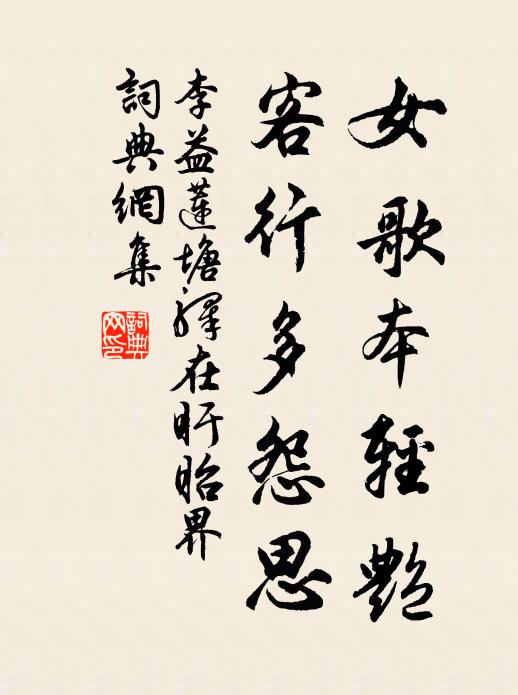 女歌本輕艷
客行多怨思
李益蓮塘驛在盱眙界
詞典網集
詞典
网印